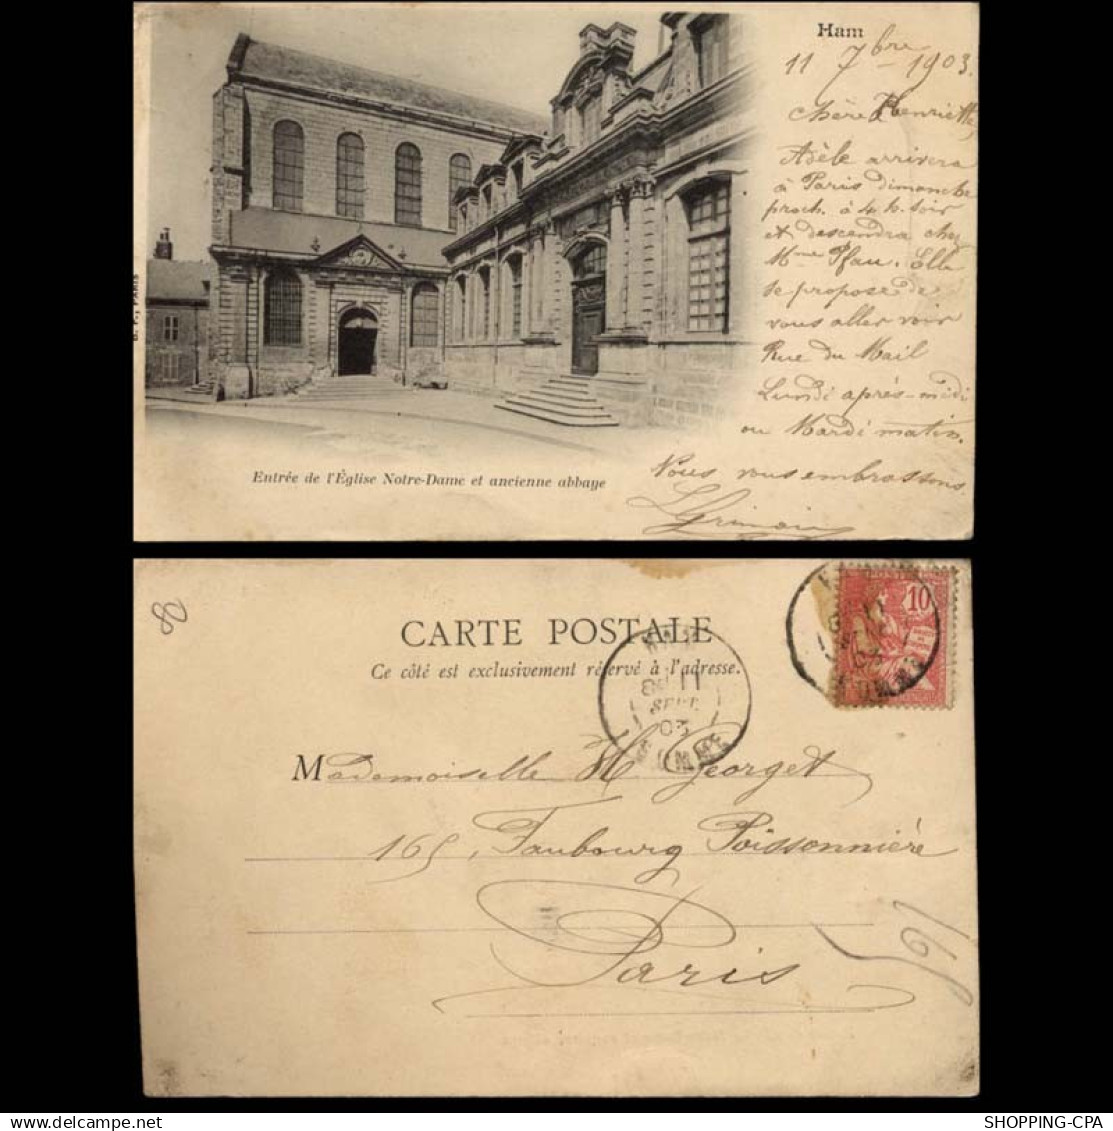 Ham
11 7bre 1903.
Chère Henriette,
Adèle arrivera
à Paris dimanche
proch. à 4 h. soir
et descendra chez
Mme Pfau. Elle
se propose de
vous aller voir
Rue du Mail
Lundi après-midi
ou Mardi matin.
Nous vous embrassons.
LGrimoin
B. F., PARIS
Entrée de l'Église Notre-Dame et ancienne abbaye
80
CARTE POSTALE
Ce côté est exclusivement réservé à l'adresse.
HAM
8E 11
SEPT.
03
SOMME
10
Mademoiselle H. Georget
165, Faubourg Poissonnière
Paris
SHOPPING-CPA